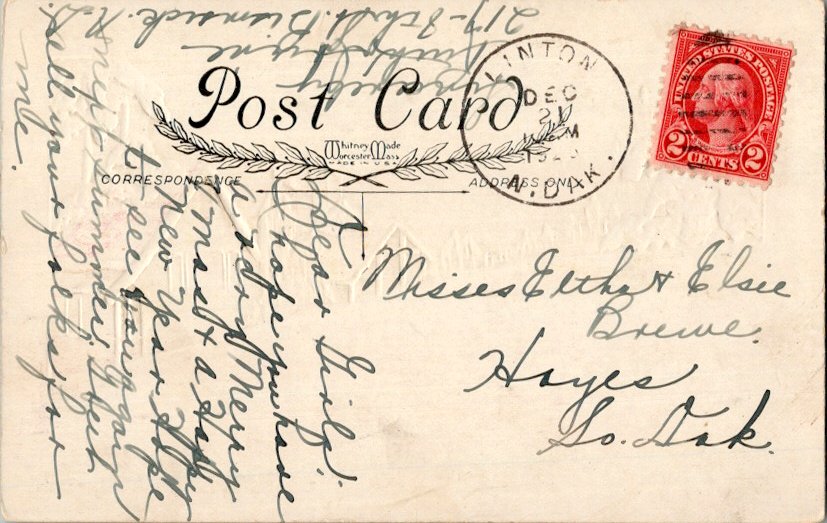 Post Card
Whitney Made
Worcester Mass
MADE IN U.S.A.
CORRESPONDENCE
ADDRESS ONLY
LINTON
DEC
21
M
N. DAK.
UNITED STATES POSTAGE
2 CENTS 2
Misses Eltha & Elsie
Brewe.
Hayes
So. Dak.
Dear Girls:
I hope you have
a very Merry
Xmas & a Happy
New Year. Hope
to see you again
next summer. Don't
tell your folks for
me.
Bismarck N.D.